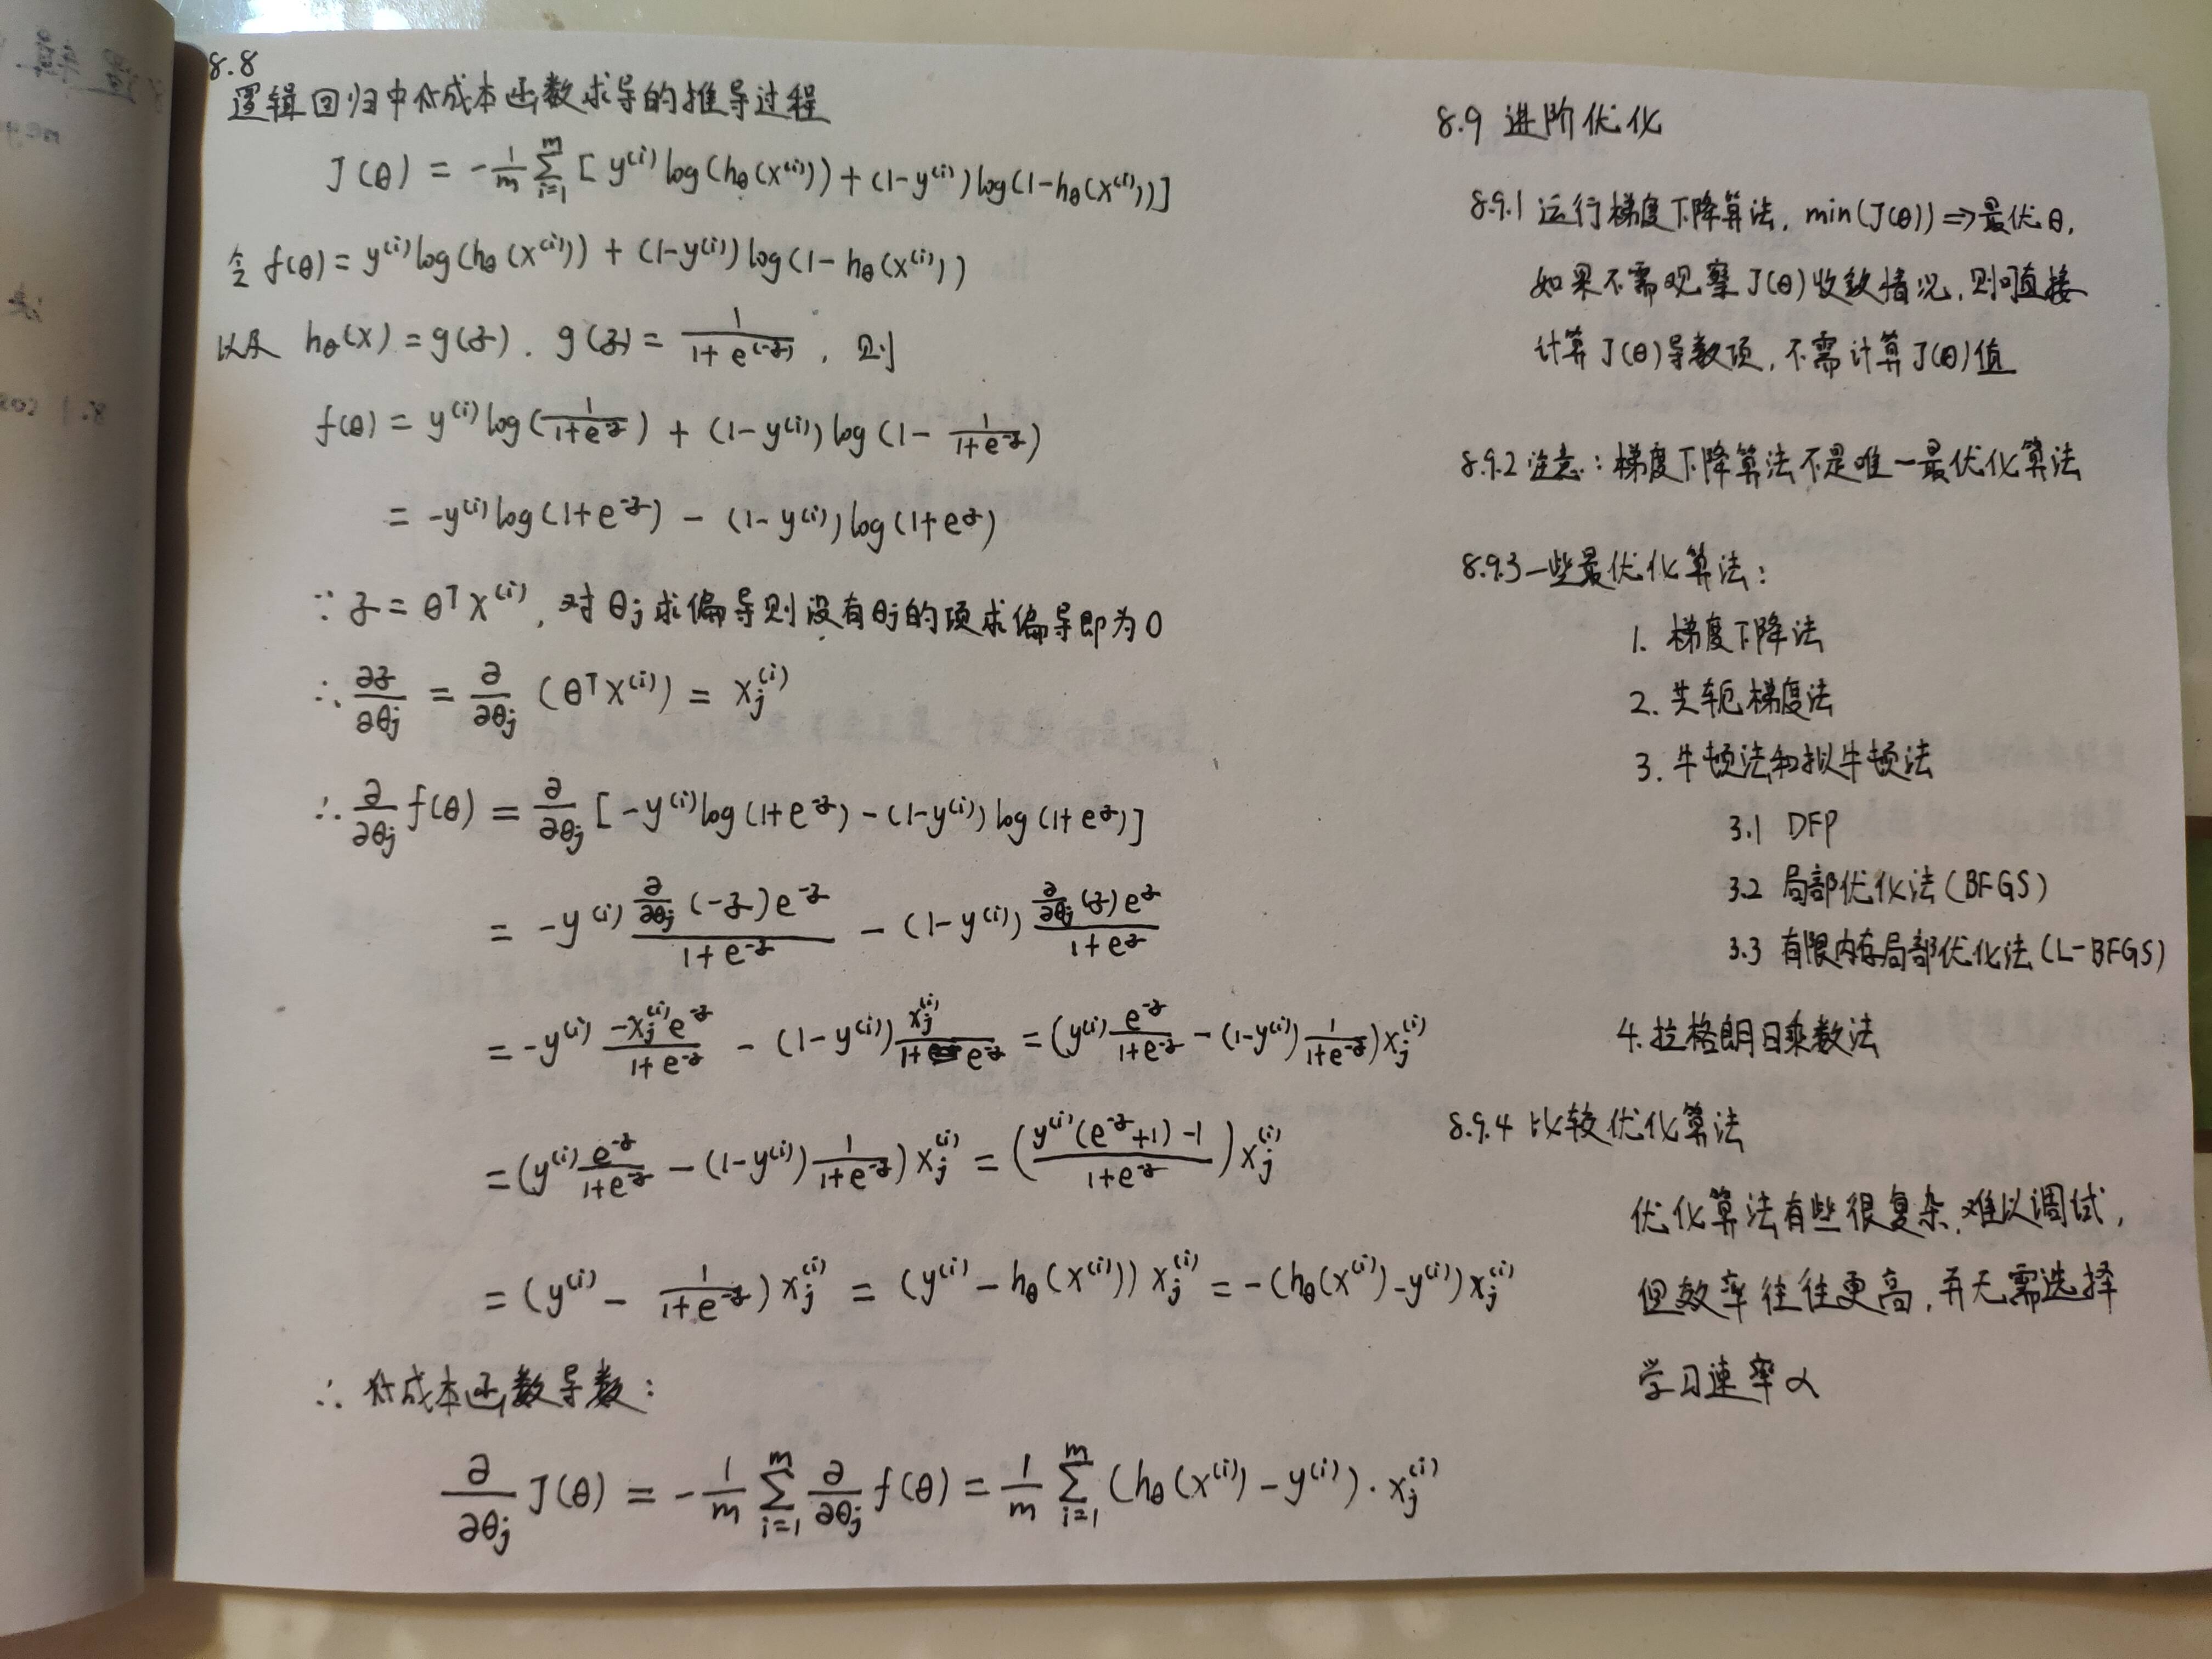 8.8
逻辑回归中代成本函数求导的推导过程
J(θ) = -1/m Σ_{i=1}^{m} [ y^(i) log(h_θ(x^(i))) + (1-y^(i)) log(1-h_θ(x^(i))) ]
令 f(θ) = y^(i) log(h_θ(x^(i))) + (1-y^(i)) log(1-h_θ(x^(i)))
以及 h_θ(x) = g(z). g(z) = 1/(1+e^(-z)), 则
f(θ) = y^(i) log(1/(1+e^-z)) + (1-y^(i)) log(1 - 1/(1+e^-z))
= -y^(i) log(1+e^-z) - (1-y^(i)) log(1+e^z)
∵ z = θ^T x^(i), 对θj求偏导则没有θj的项求偏导即为0
∴ ∂z/∂θj = ∂/∂θj (θ^T x^(i)) = x_j^(i)
∴ ∂/∂θj f(θ) = ∂/∂θj [ -y^(i) log(1+e^-z) - (1-y^(i)) log(1+e^z) ]
= -y^(i) (∂/∂θj (-z) e^-z)/(1+e^-z) - (1-y^(i)) (∂/∂θj (z) e^z)/(1+e^z)
= -y^(i) (-x_j^(i) e^-z)/(1+e^-z) - (1-y^(i)) x_j^(i)/(1+e^-z) = (y^(i) e^-z/(1+e^-z) - (1-y^(i)) 1/(1+e^-z)) x_j^(i)
= (y^(i) e^-z/(1+e^-z) - (1-y^(i)) 1/(1+e^-z)) x_j^(i) = ((y^(i)(e^-z+1)-1)/(1+e^-z)) x_j^(i)
= (y^(i) - 1/(1+e^-z)) x_j^(i) = (y^(i) - h_θ(x^(i))) x_j^(i) = -(h_θ(x^(i)) - y^(i)) x_j^(i)
∴ 代成本函数导数:
∂/∂θj J(θ) = -1/m Σ_{i=1}^{m} ∂/∂θj f(θ) = 1/m Σ_{i=1}^{m} (h_θ(x^(i)) - y^(i)) · x_j^(i)
8.9 进阶优化
8.9.1 运行梯度下降算法, min(J(θ)) ⇒ 最优θ,
如果不需观察J(θ)收敛情况, 则可直接
计算J(θ)导数项, 不需计算J(θ)值
8.9.2 注意: 梯度下降算法不是唯一最优化算法
8.9.3 一些最优化算法:
1. 梯度下降法
2. 共轭梯度法
3. 牛顿法和拟牛顿法
3.1 DFP
3.2 局部优化法(BFGS)
3.3 有限内存局部优化法(L-BFGS)
4. 拉格朗日乘数法
8.9.4 比较优化算法
优化算法有些很复杂, 难以调试,
但效率往往更高, 并无需选择
学习速率α